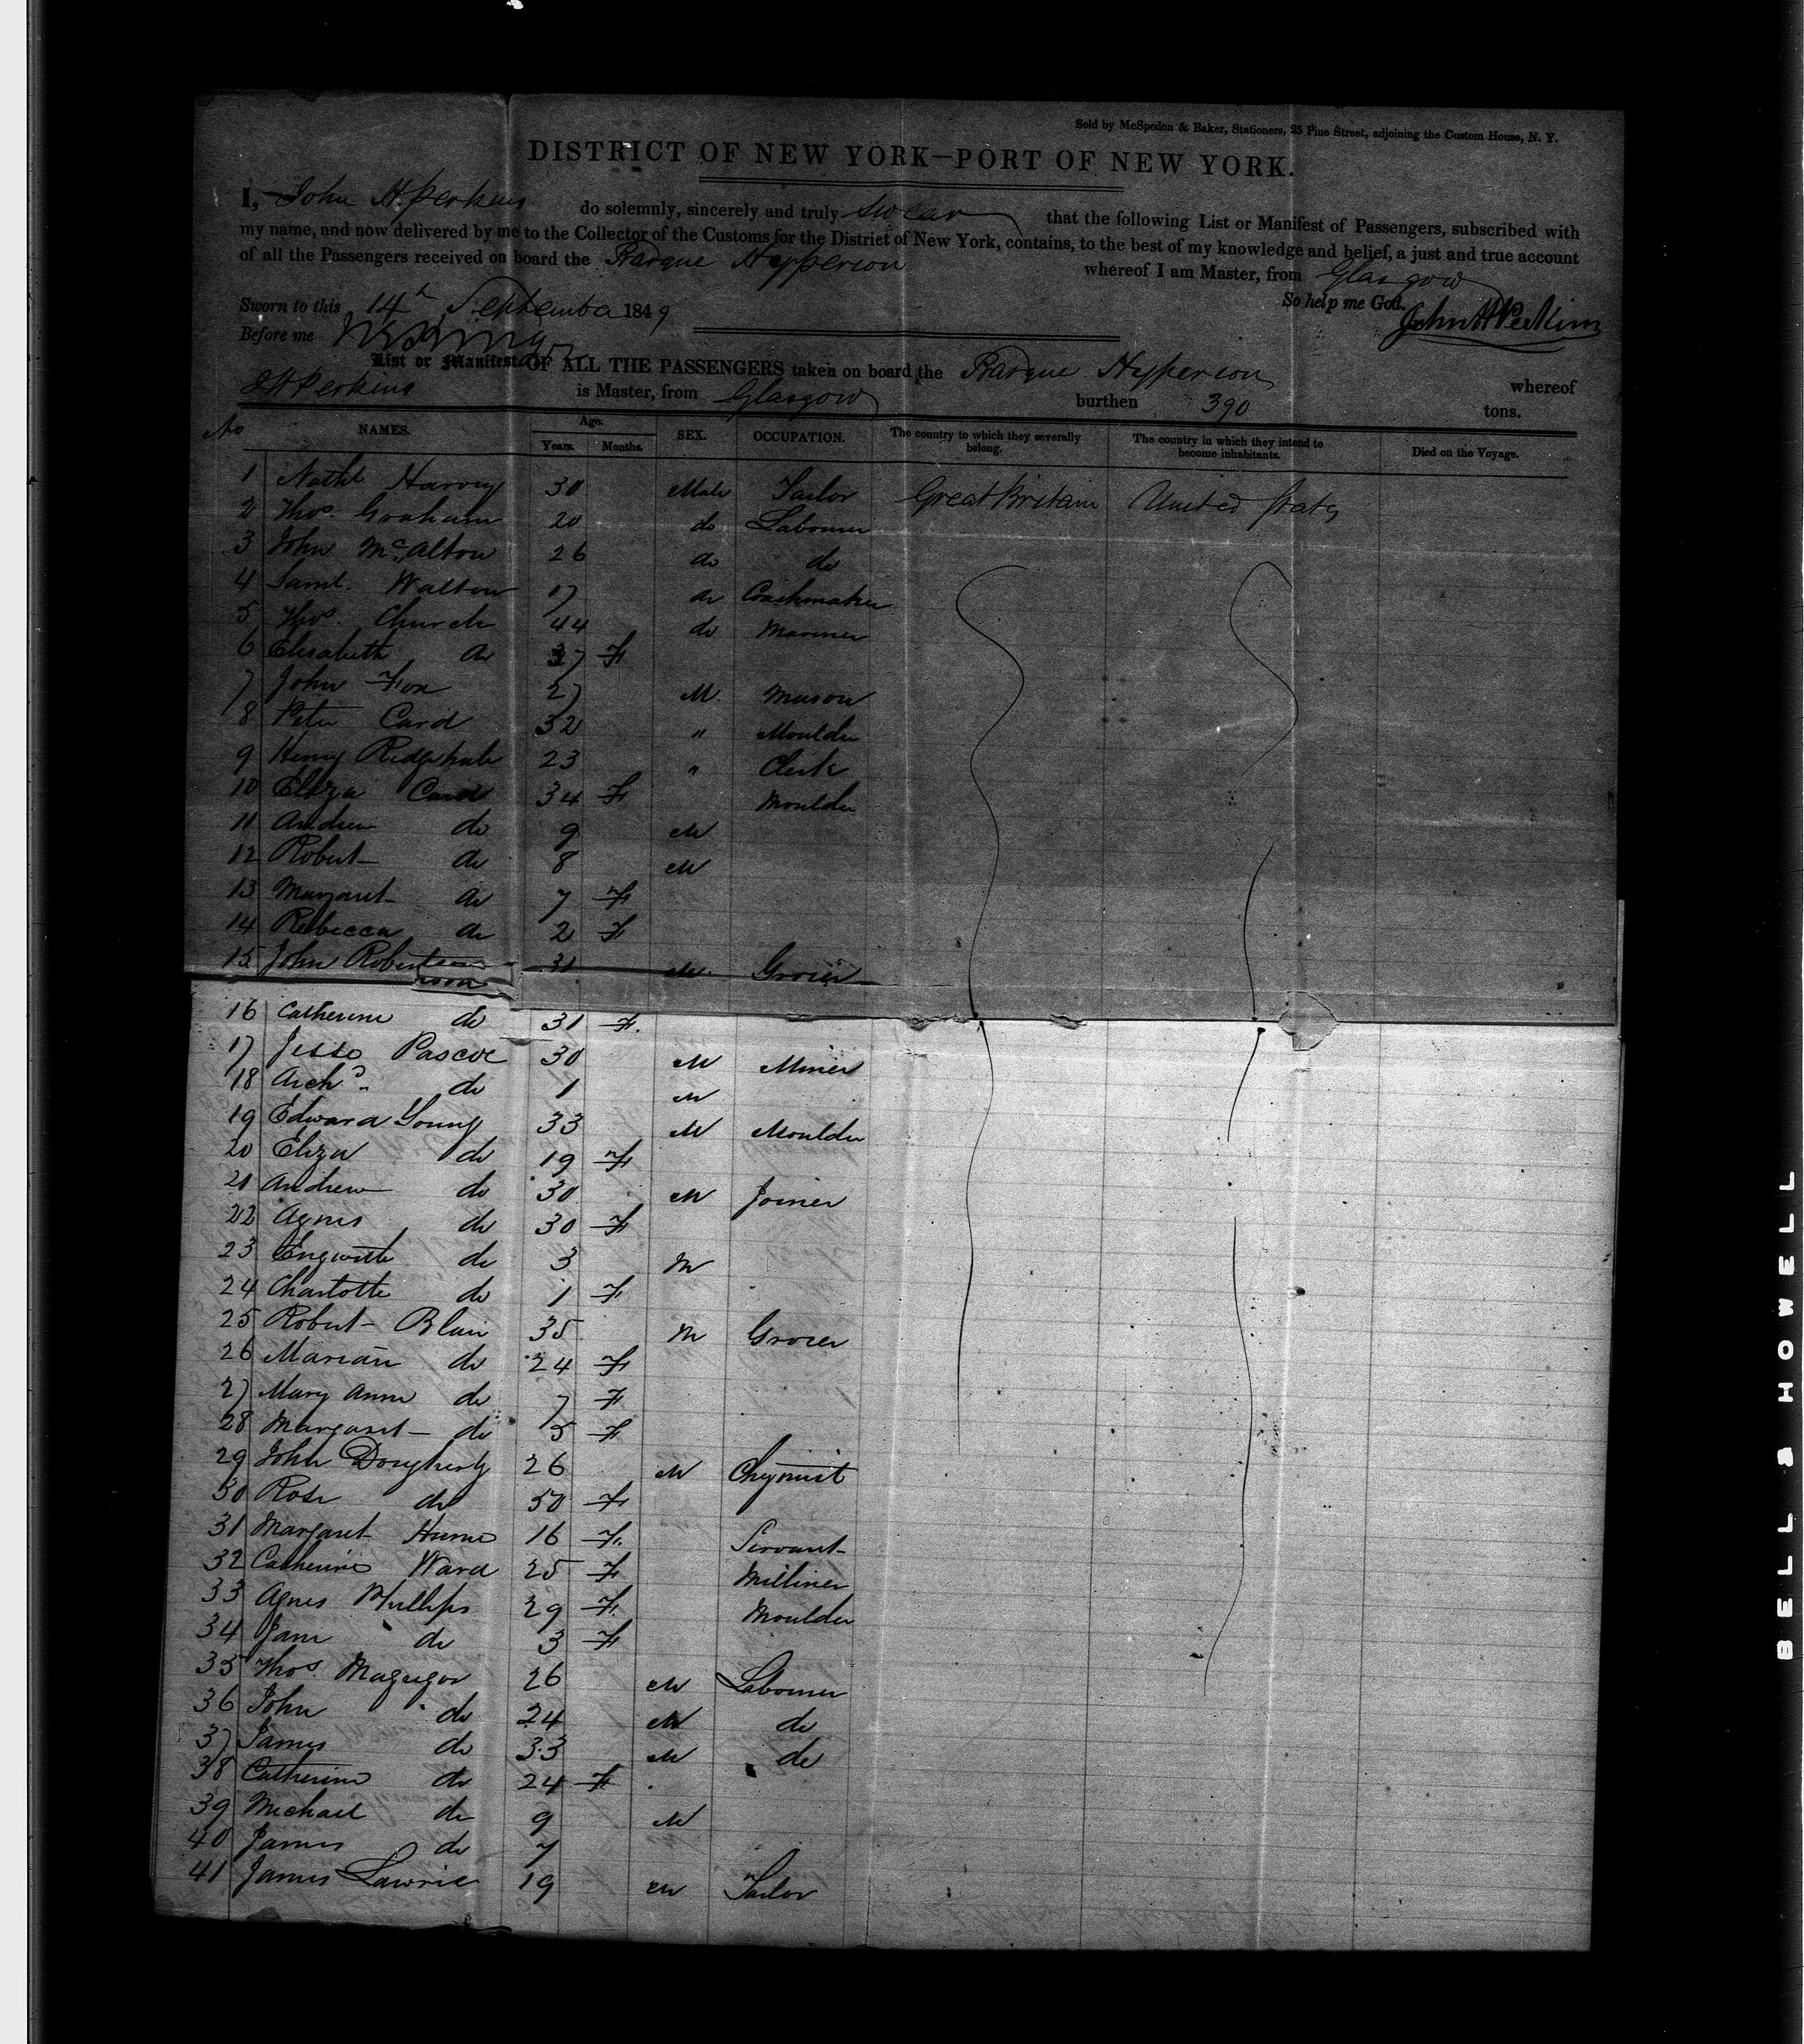 Sold by McSpedon & Baker, Stationers, 25 Pine Street, adjoining the Custom House, N. Y.
DISTRICT OF NEW YORK—PORT OF NEW YORK.
I, John H. Perkins do solemnly, sincerely and truly swear that the following List or Manifest of Passengers, subscribed with
my name, and now delivered by me to the Collector of the Customs for the District of New York, contains, to the best of my knowledge and belief, a just and true account
of all the Passengers received on board the Barque Hypperion whereof I am Master, from Glasgow
So help me God.
Sworn to this 14th September 1849 John H Perkins
Before me
List or Manifest OF ALL THE PASSENGERS taken on board the Barque Hypperion whereof
JH Perkins is Master, from Glasgow burthen 390 tons.
No NAMES. Age. Years. Months. SEX. OCCUPATION. The country to which they severally belong. The country in which they intend to become inhabitants. Died on the Voyage.
1 Nathl Harvey 30 Male Tailor Great Britain United States
2 Thos. Graham 20 do Labourer
3 John McAlton 26 do do
4 Saml. Walton 17 do Coachmaker
5 Thos. Church 44 do Mariner
6 Elisabeth do 37 F
7 John Fox 27 M. Mason
8 Peter Card 32 " Moulder
9 Henry 23 " Clerk
10 Eliza Card 34 F Moulder
11 Andrew do 9 M
12 Robert do 8 M
13 Margaret do 7 F
14 Rebecca do 2 F
15 John Robertson 31 M. Grocer
16 Catherine do 31 F.
17 Jesse Pascoe 30 M Miner
18 Archd. do 1 M
19 Edward Young 33 M Moulder
20 Eliza do 19 F
21 Andrew do 30 M Joiner
22 Agnes do 30 F
23 do 3 M
24 Charlotte do 1 F
25 Robert Blair 35 M Grocer
26 Marian do 24 F
27 Mary Anne do 7 F
28 Margaret do 5 F
29 John Dougherty 26 M Chymist
30 Rose do 50 F
31 Margaret Hume 16 F. Servant
32 Catherine Ward 25 F Milliner
33 Agnes Phillips 29 F. Moulder
34 Jane do 3 F
35 Thos. Magregor 26 M Labourer
36 John do 24 M do
37 James do 33 M do
38 Catherine do 24 F
39 Michael do 9 M
40 James do 7
41 James Lawrie 19 M Tailor
BELL & HOWELL